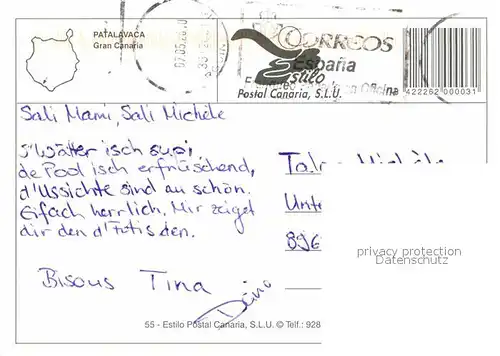 PATALAVACA
Gran Canaria
07.05.20
CORREOS
España
Estilo
Postal Canaria, S.L.U.
422262 000031
Sali Mami, Sali Michèle
s'Wätter isch supi,
de Pool isch erfrüschend,
d'Ussichte sind au schön.
Eifach herrlich. Mir zeiget
dir den d'Föteli den.
Bisous Tina
Dino
Unt
896
privacy protection
Datenschutz
55 - Estilo Postal Canaria, S.L.U. © Telf.: 928